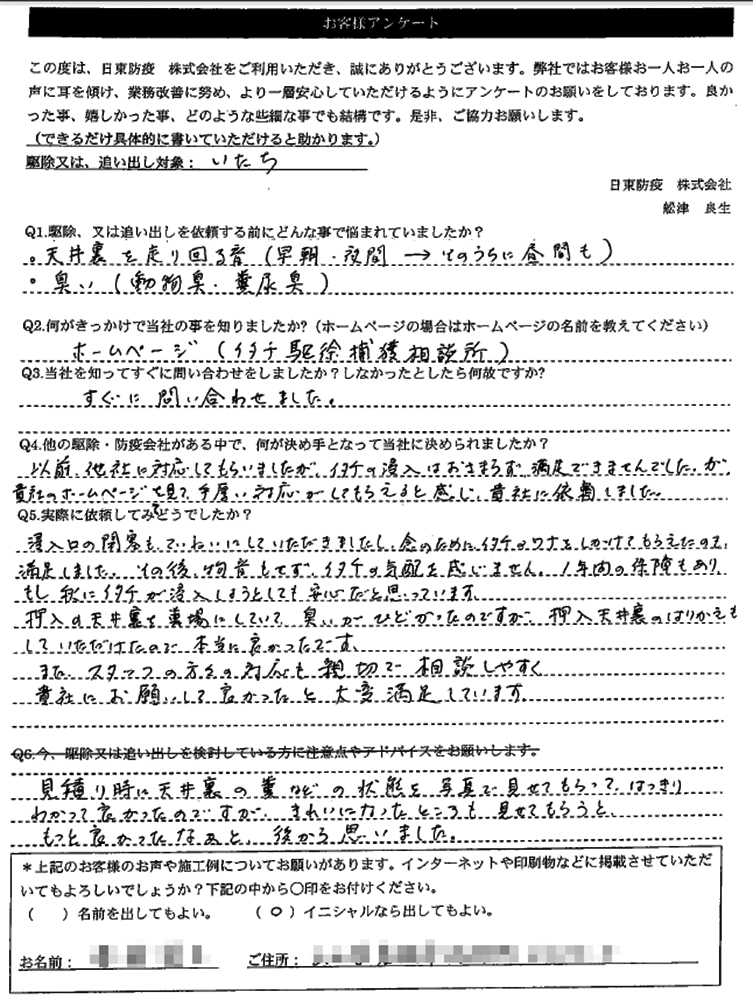 お客様アンケート
この度は、日東防疫　株式会社をご利用いただき、誠にありがとうございます。弊社ではお客様お一人お一人の
声に耳を傾け、業務改善に努め、より一層安心していただけるようにアンケートのお願いをしております。良か
った事、嬉しかった事、どのような些細な事でも結構です。是非、ご協力お願いします。
（できるだけ具体的に書いていただけると助かります。）
駆除又は、追い出し対象：いたち
日東防疫　株式会社
舩津　良生
Q1.駆除、又は追い出しを依頼する前にどんな事で悩まれていましたか？
。天井裏を走り回る音（早朝・夜間 → そのうちに昼間も）
・臭い（動物臭・糞尿臭）
Q2.何がきっかけで当社の事を知りましたか?（ホームページの場合はホームページの名前を教えてください）
ホームページ（イタチ駆除捕獲相談所）
Q3.当社を知ってすぐに問い合わせをしましたか？しなかったとしたら何故ですか?
すぐに問い合わせました。
Q4.他の駆除・防疫会社がある中で、何が決め手となって当社に決められましたか？
以前、他社に対応してもらいましたが、イタチの浸入はおさまらず、満足できませんでした、が、
貴社のホームページを見て、手厚い対応がしてもらえると感じ、貴社に依頼しました。
Q5.実際に依頼してみてどうでしたか？
浸入口の閉塞も、ていねいにしていただきましたし、念のためにイタチのワナをしかけてもらえたので、
満足しました。その後、物音もせず、イタチの気配を感じません。1年間の保障もあり
もし秋にイタチが浸入しようとしても安心だと思っています。
押入の天井裏を糞場にしていて、臭いがひどかったのですが、押入天井裏のはりかえも
していただけたので、本当に良かったです。
また、スタッフの方々の対応も親切で相談しやすく
貴社にお願いして良かったと大変満足しています
Q6.今、駆除又は追い出しを検討している方に注意点やアドバイスをお願いします。
見積り時に天井裏の糞などの状態を写真で見せてもらって、はっきり
わかって良かったのですが、きれいになったところも見せてもらうと、
もっと良かったなぁと、後から思いました。
＊上記のお客様のお声や施工例についてお願いがあります。インターネットや印刷物などに掲載させていただ
いてもよろしいでしょうか？下記の中から〇印をお付けください。
（　）名前を出してもよい。　（○）イニシャルなら出してもよい。
お名前：　ご住所：